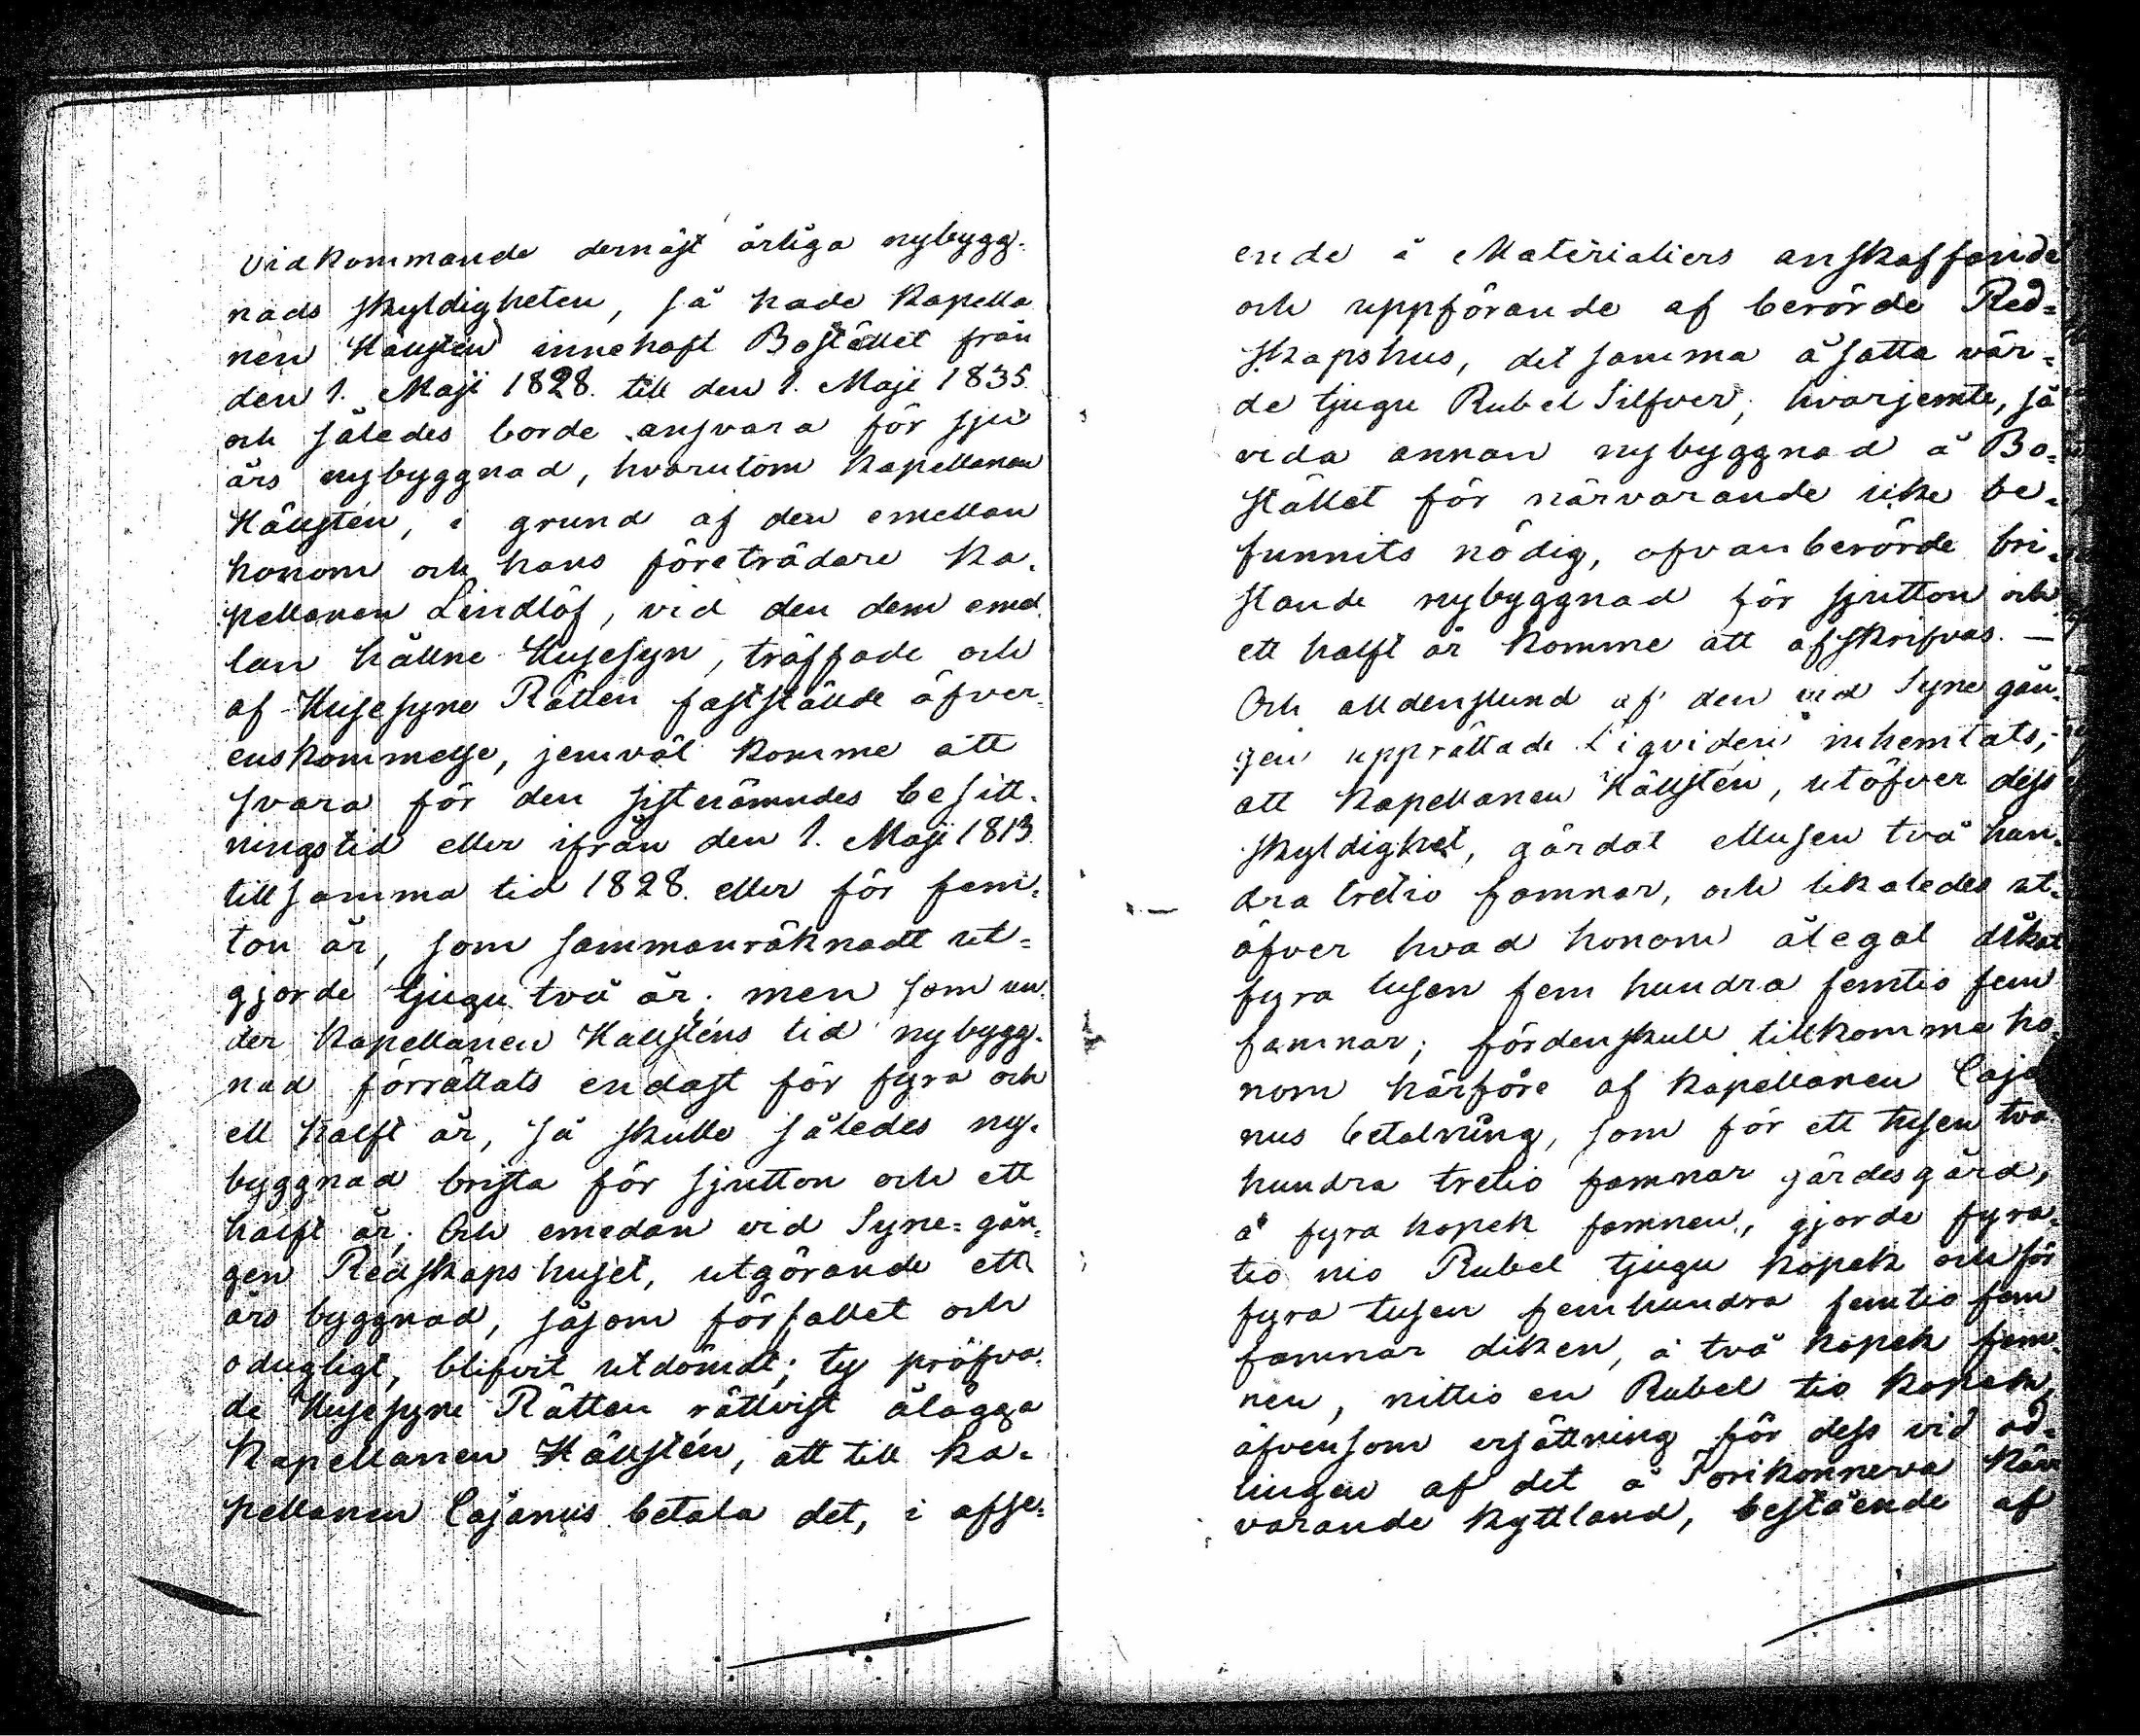 Vidkommande dernäst årliga nybygg=
nads skyldigheten, så hade Kapella
nen Hällstén innehaft Bostället från
den 1. Maji 1828. till den 1. Maji 1835.
och således borde ansvara för sju
års nybyggnad, hvarutom Kapellanen
Hällstén, i grund af den emellan
honom och hans företrädare Ka=
pellanen Lindlöf, vid den dem emel
lan hållne Husesyn, träffade och
af Husesyne Rätten fastställde öfver=
enskommelse, jemväl komme att
svara för den sistnämndes besitt=
ningstid eller ifrån den 1. Maji 1813.
till samma tid 1828. eller för fem=
ton år, som sammanräknadt ut=
gjorde tjugu två år; men som un=
der Kapellanen Hällsténs tid nybygg=
nad förrättats endast för fyra och
ett halft år, så skulle således ny=
byggnad brista för sjutton och ett
halft år; Och emedan vid Syne=gån=
gen Redskapshuset, utgörande ett
års byggnad, såsom förfallet och
odugligt, blifvit utdömdt; ty pröfva=
de Husesyne Rätten rättvist ålägga
Kapellanen Hällstén, att till Ka=
pellanen Cajanus betala det, i afse=
ende å Materialiers anskaffande
och uppförande af berörde Red=
skapshus, detsamma åsatta vär=
de tjugu Rubel Silfver; hvarjemte, så
vida annan nybyggnad å Bo=
stället för närvarande icke be=
funnits nödig, ofvanberörde bri=
stande nybyggnad för sjutton och
ett halft år komme att afskrifvas. —
Och alldenstund af den vid Syne gån=
gen upprättade Liqviden inhemtats,
att Kapellanen Hällstén, utöfver dess
skyldighet, gärdat ettusen två hun=
dra tretio famnar, och likaledes ut=
öfver hvad honom ålegat dikat
fyra tusen fem hundra femtio fem
famnar; fördenskull tillkomma ho=
nom härföre af Kapellanen Caja
nus betalning, som för ett tusen två
hundra tretio famnar gärdesgård,
à fyra kopek famnen, gjorde fyra=
tio nio Rubel tjugu kopek och för
fyra tusen femhundra femtio fem
famnar diken, à två kopek fam=
nen, nittio en Rubel tio kopek,
äfvensom ersättning för dess vid od=
lingen af det å Torikonneva kär
varande kyttland, bestående af